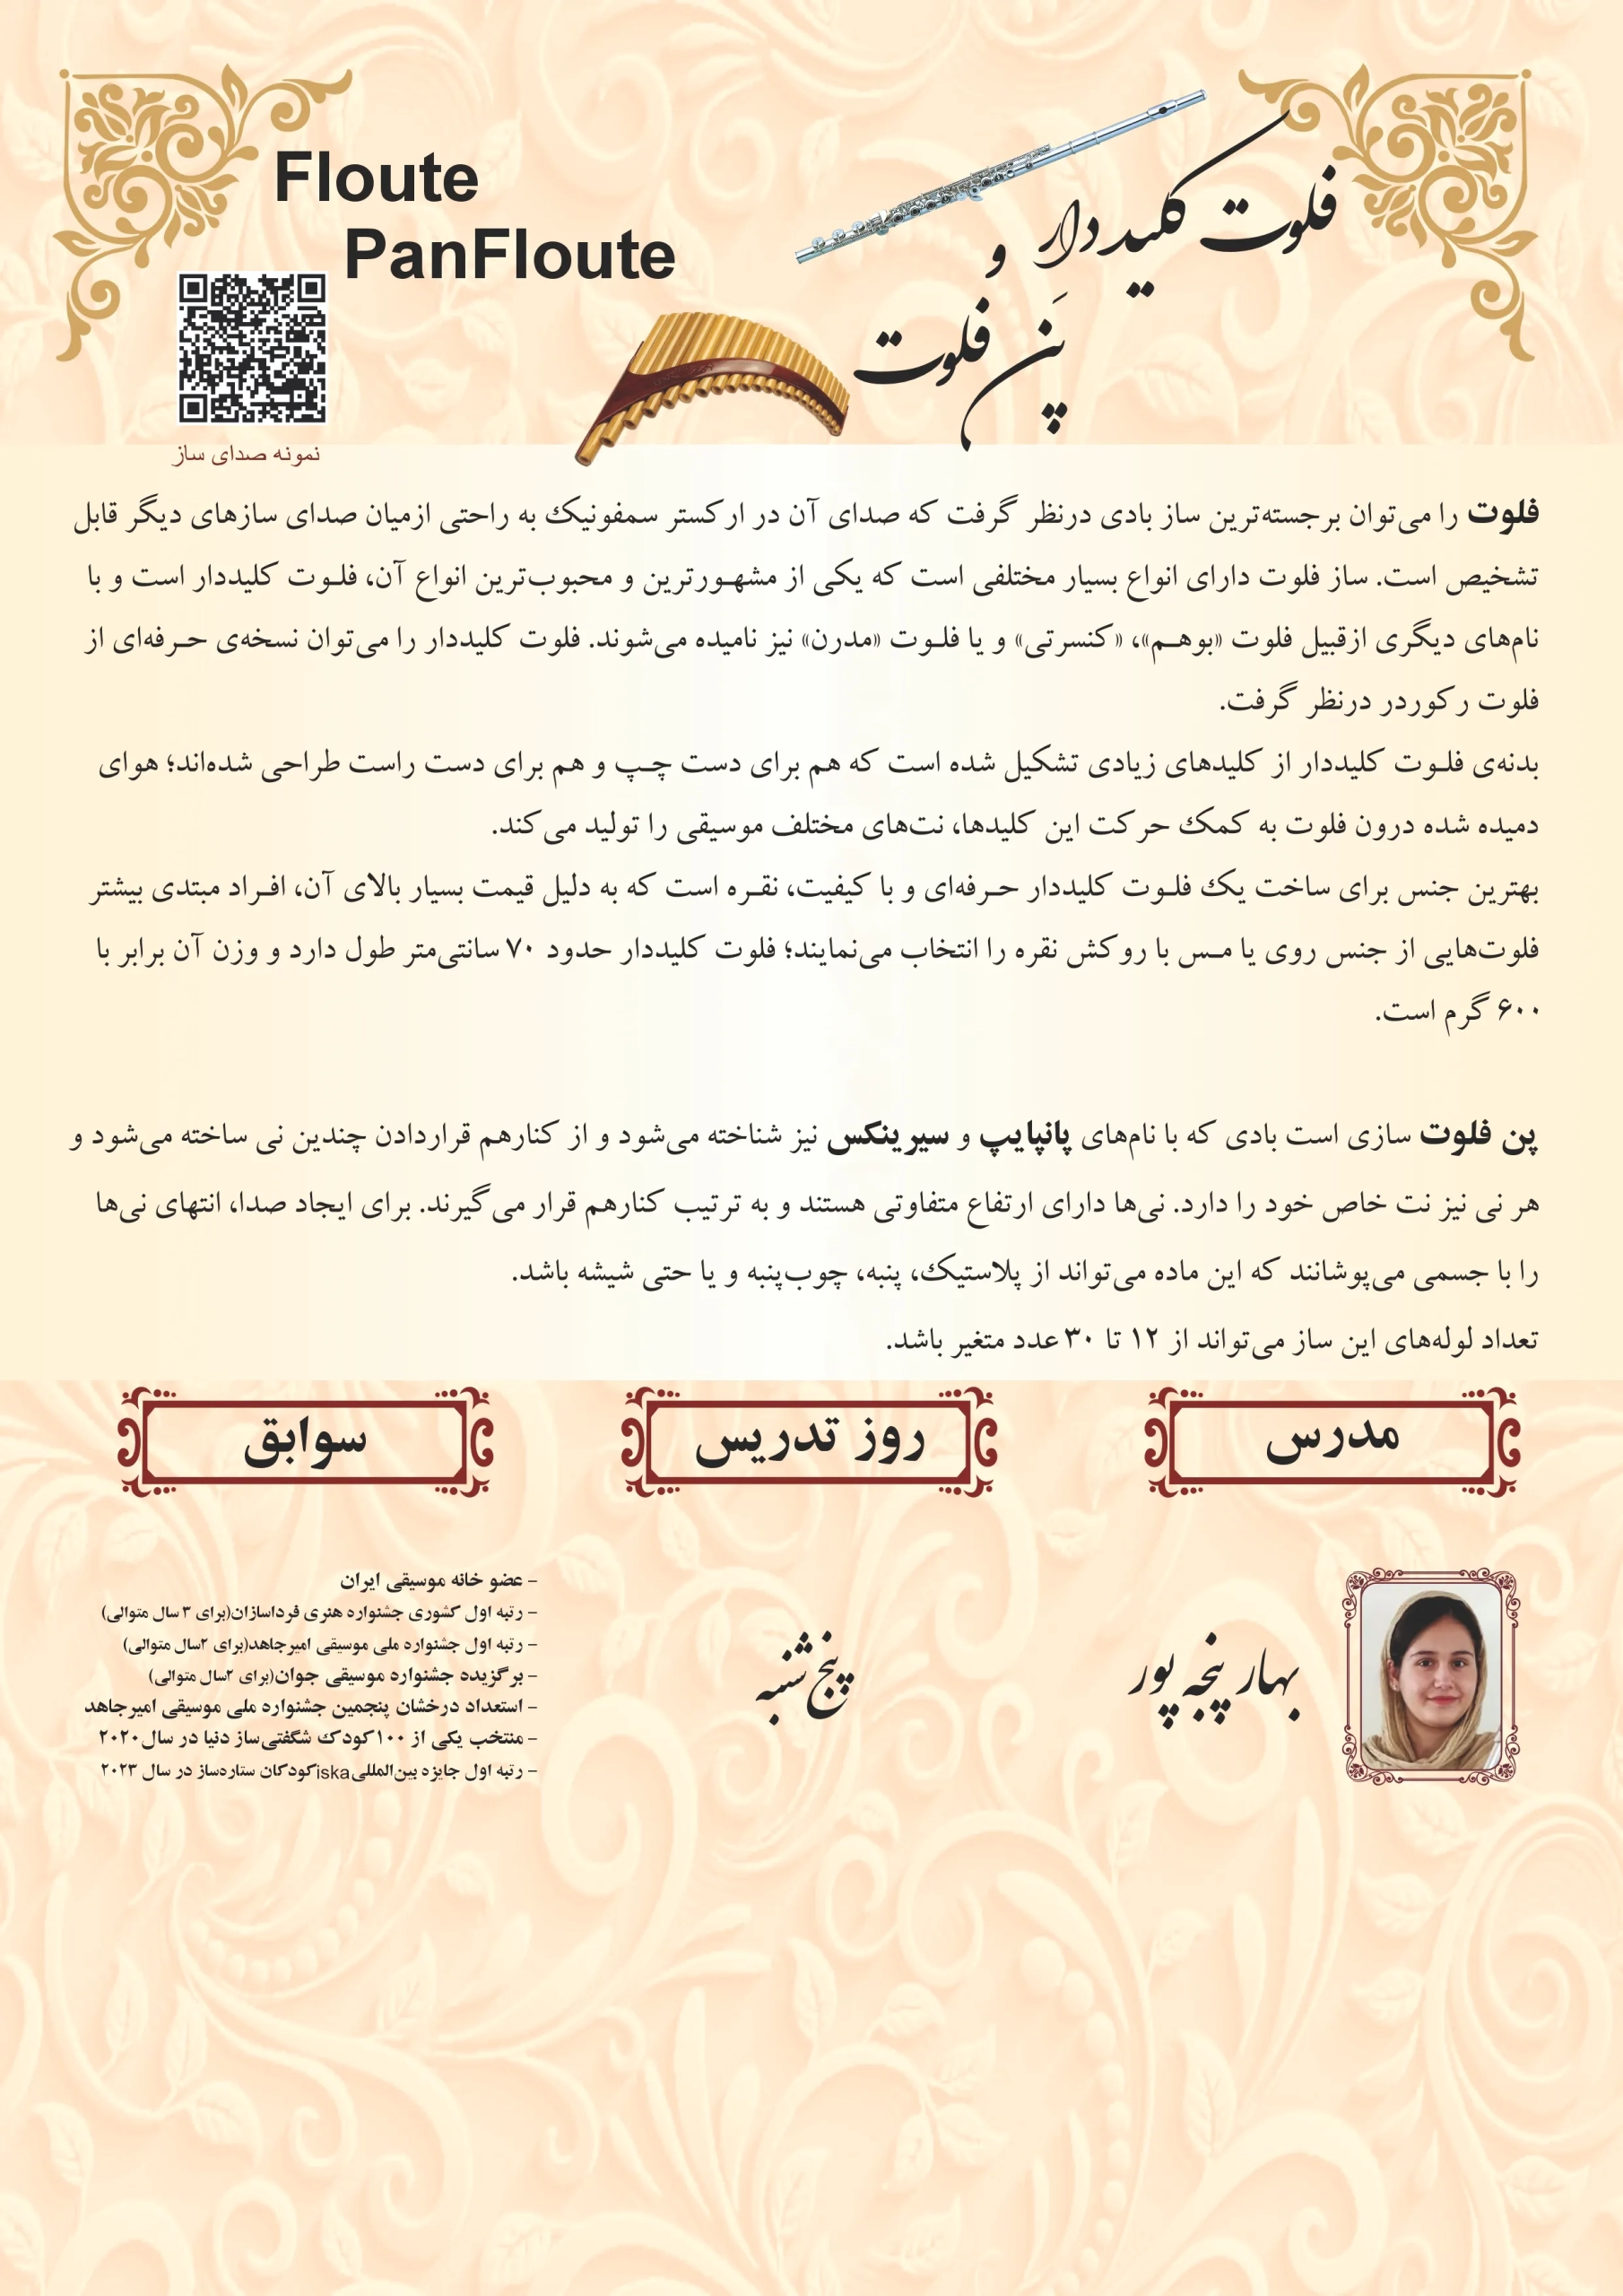 Floute
PanFloute
فلوت کلیددار و
پَن فلوت
نمونه صدای ساز
فلوت را می‌توان برجسته‌ترین ساز بادی درنظر گرفت که صدای آن در ارکستر سمفونیک به راحتی ازمیان صدای سازهای دیگر قابل
تشخیص است. ساز فلوت دارای انواع بسیار مختلفی است که یکی از مشهـورترین و محبوب‌ترین انواع آن، فلـوت کلیددار است و با
نام‌های دیگری ازقبیل فلوت «بوهـم»، «کنسرتی» و یا فلـوت «مدرن» نیز نامیده می‌شوند. فلوت کلیددار را می‌توان نسخه‌ی حـرفه‌ای از
فلوت رکوردر درنظر گرفت.
بدنه‌ی فلـوت کلیددار از کلیدهای زیادی تشکیل شده است که هم برای دست چـپ و هم برای دست راست طراحی شده‌اند؛ هوای
دمیده شده درون فلوت به کمک حرکت این کلیدها، نت‌های مختلف موسیقی را تولید می‌کند.
بهترین جنس برای ساخت یک فلـوت کلیددار حـرفه‌ای و با کیفیت، نقـره است که به دلیل قیمت بسیار بالای آن، افـراد مبتدی بیشتر
فلوت‌هایی از جنس روی یا مـس با روکش نقره را انتخاب می‌نمایند؛ فلوت کلیددار حدود ۷۰ سانتی‌متر طول دارد و وزن آن برابر با
۶۰۰ گرم است.
پن فلوت سازی است بادی که با نام‌های پانپایپ و سیرینکس نیز شناخته می‌شود و از کنارهم قراردادن چندین نی ساخته می‌شود و
هر نی نیز نت خاص خود را دارد. نی‌ها دارای ارتفاع متفاوتی هستند و به ترتیب کنارهم قرار می‌گیرند. برای ایجاد صدا، انتهای نی‌ها
را با جسمی می‌پوشانند که این ماده می‌تواند از پلاستیک، پنبه، چوب‌پنبه و یا حتی شیشه باشد.
تعداد لوله‌های این ساز می‌تواند از ۱۲ تا ۳۰ عدد متغیر باشد.
مدرس
روز تدریس
سوابق
بهار پنجه پور
پنج شنبه
- عضو خانه موسیقی ایران
- رتبه اول کشوری جشنواره هنری فرداسازان(برای ۳ سال متوالی)
- رتبه اول جشنواره ملی موسیقی امیرجاهد(برای ۲سال متوالی)
- برگزیده جشنواره موسیقی جوان(برای ۲سال متوالی)
- استعداد درخشان پنجمین جشنواره ملی موسیقی امیرجاهد
- منتخب یکی از ۱۰۰کودک شگفتی‌ساز دنیا در سال۲۰۲۰
- رتبه اول جایزه بین‌المللیiskaکودکان ستاره‌ساز در سال ۲۰۲۳